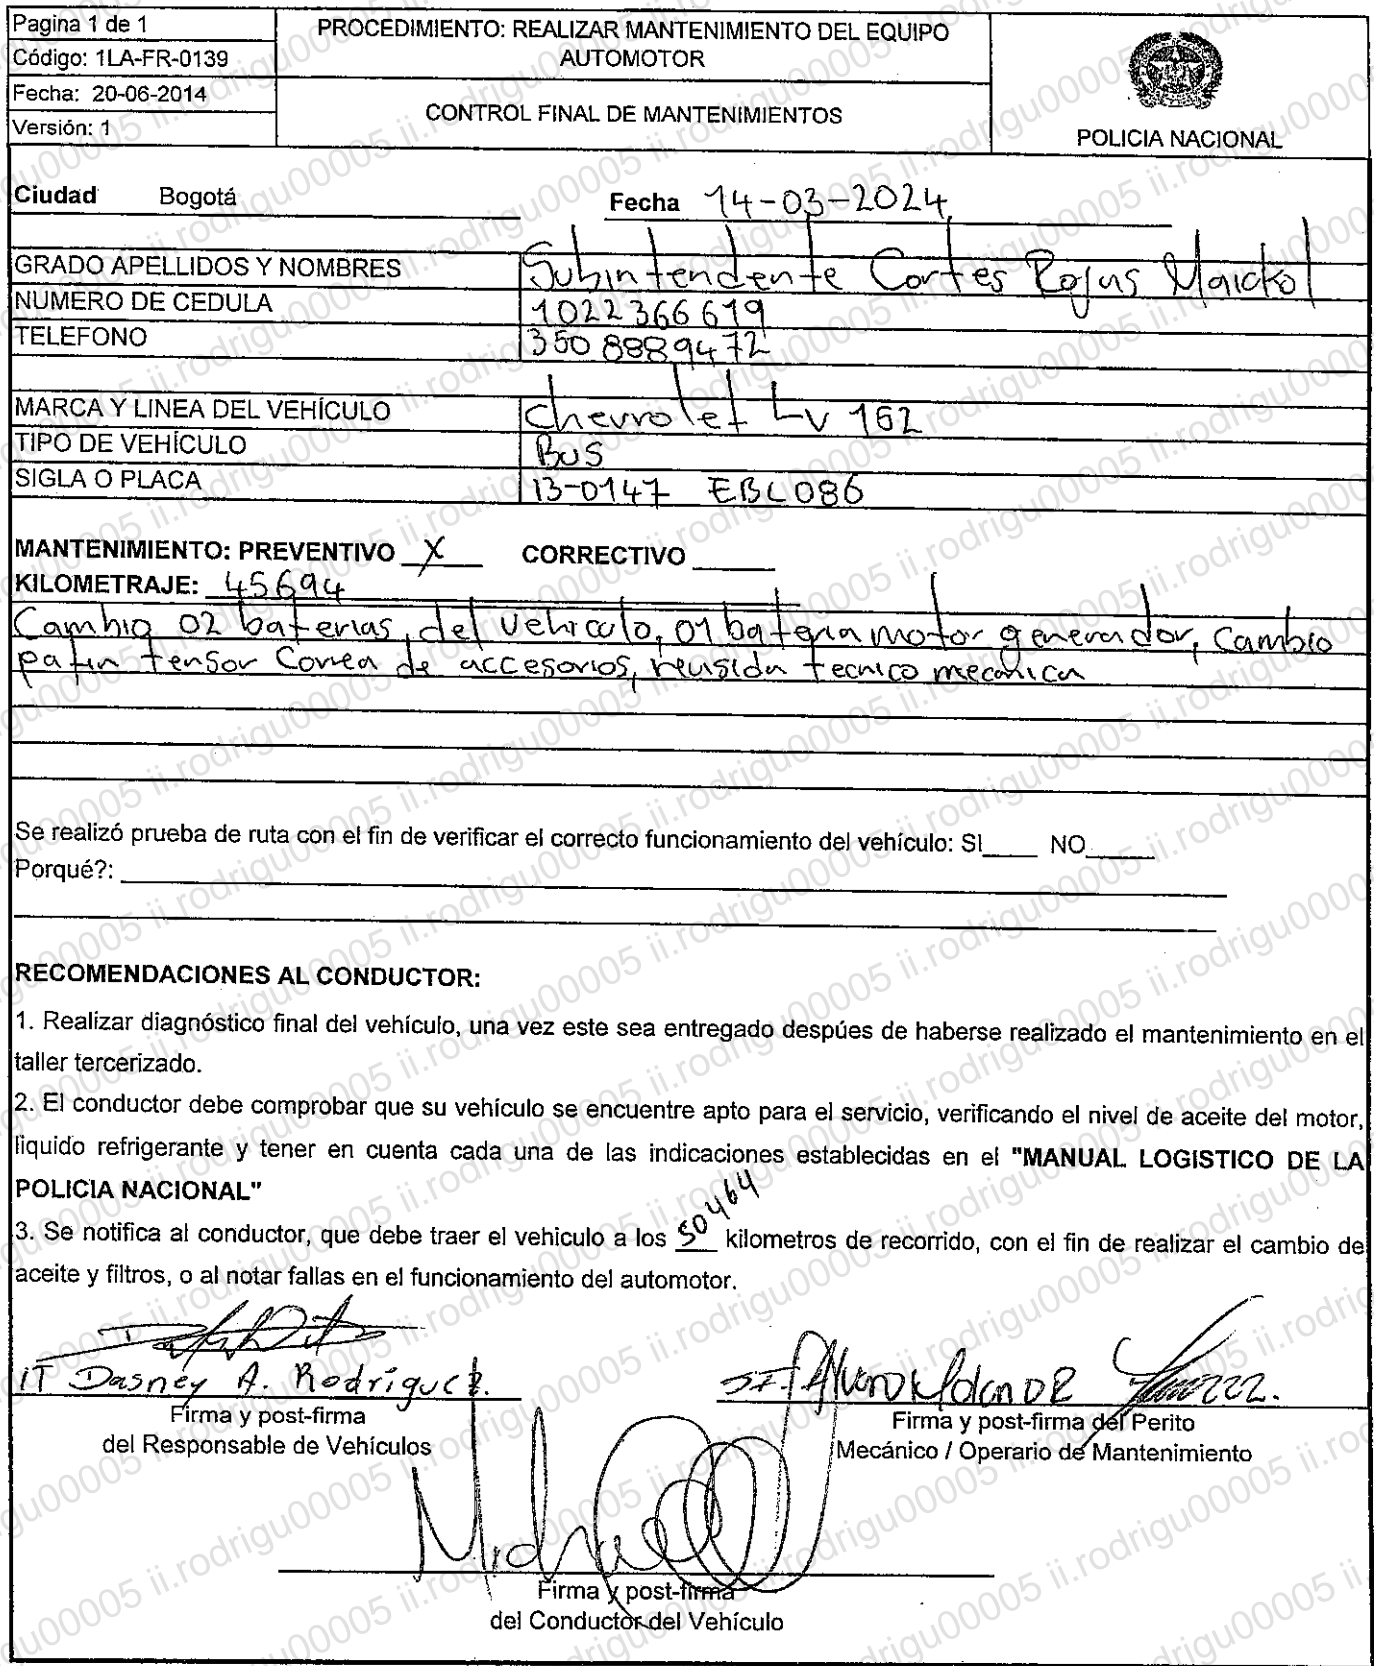 Pagina 1 de 1
Código: 1LA-FR-0139
Fecha: 20-06-2014
Versión: 1
PROCEDIMIENTO: REALIZAR MANTENIMIENTO DEL EQUIPO
AUTOMOTOR
CONTROL FINAL DE MANTENIMIENTOS
POLICIA NACIONAL
Ciudad Bogotá Fecha 14-03-2024
GRADO APELLIDOS Y NOMBRES Subintendente Cortes Rojas Maickol
NUMERO DE CEDULA 1022366619
TELEFONO 350 8889472
MARCA Y LINEA DEL VEHÍCULO Chevrolet Lv 152
TIPO DE VEHÍCULO Bus
SIGLA O PLACA 13-0147 EBL086
MANTENIMIENTO: PREVENTIVO X CORRECTIVO
KILOMETRAJE: 45694
Cambio 02 baterias, del vehiculo, 01 bateria motor generador, Cambio
patin tensor Correa de accesorios, revisión tecnico mecánica
Se realizó prueba de ruta con el fin de verificar el correcto funcionamiento del vehículo: SI____ NO____
Porqué?:
RECOMENDACIONES AL CONDUCTOR:
1. Realizar diagnóstico final del vehículo, una vez este sea entregado despúes de haberse realizado el mantenimiento en el
taller tercerizado.
2. El conductor debe comprobar que su vehículo se encuentre apto para el servicio, verificando el nivel de aceite del motor,
liquido refrigerante y tener en cuenta cada una de las indicaciones establecidas en el "MANUAL LOGISTICO DE LA
POLICIA NACIONAL"
3. Se notifica al conductor, que debe traer el vehiculo a los 50464 kilometros de recorrido, con el fin de realizar el cambio de
aceite y filtros, o al notar fallas en el funcionamiento del automotor.
IT Dasney A. Rodríguez.
Firma y post-firma
del Responsable de Vehículos
Firma y post-firma del Perito
Mecánico / Operario de Mantenimiento
Firma y post-firma
del Conductor del Vehículo
ii.rodrigu00005